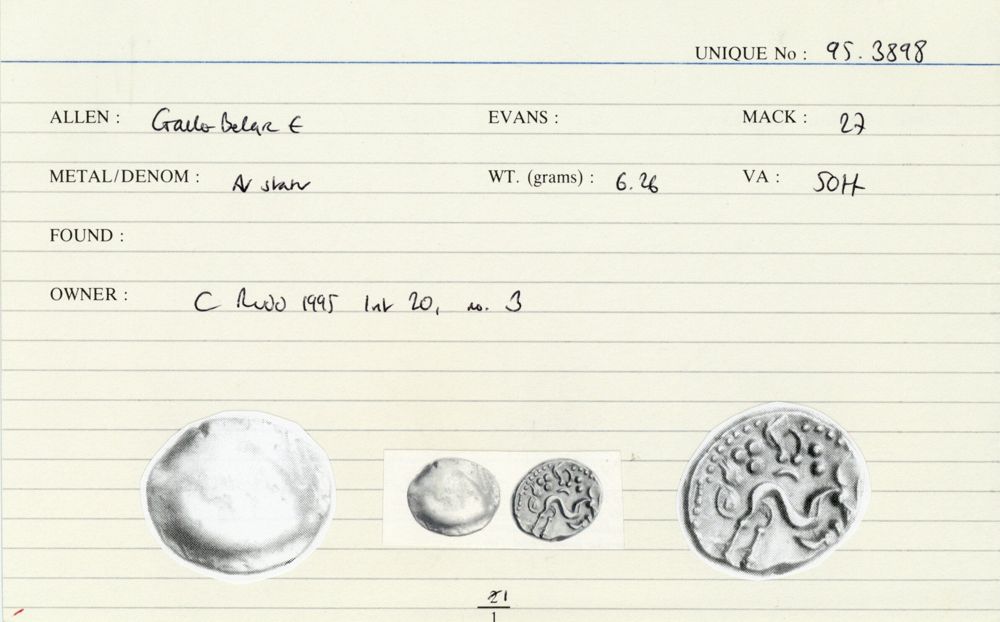 UNIQUE No : 95.3898
ALLEN : Gallo-Belgic E EVANS : MACK : 27
METAL/DENOM : AV stater WT. (grams) : 6.26 VA : 50H
FOUND :
OWNER : C Rudd 1995 list 20, no. 3
21
1